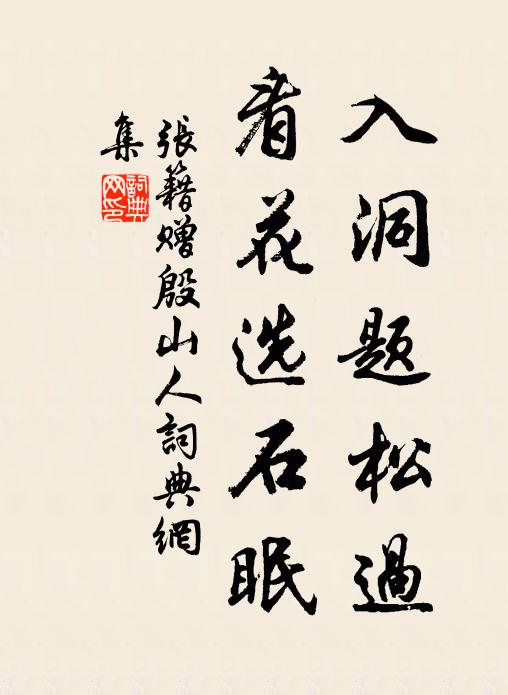 入洞题松過
看花选石眠
張籍贈殷山人詞典網
集
詞典
网印